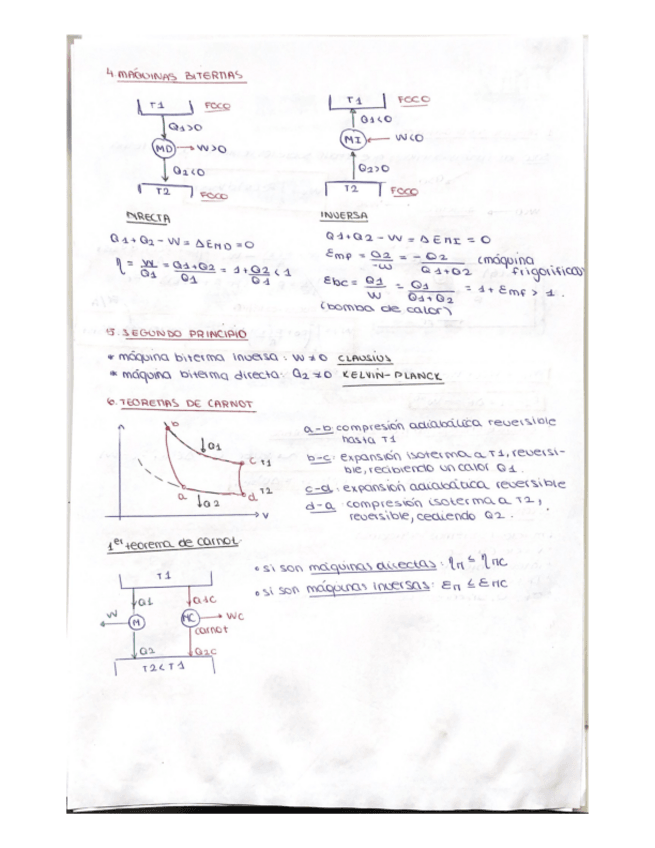 4. MÁQUINAS BITERMAS
T1 FOCO
Q1>0
MD W>0
Q2<0
T2 FOCO
DIRECTA
Q1+Q2-W=ΔEMD=0
η = W/Q1 = (Q1+Q2)/Q1 = 1+Q2/Q1 < 1
T1 FOCO
Q1<0
MI W<0
Q2>0
T2 FOCO
INVERSA
Q1+Q2-W=ΔEMI=0
εmf = Q2/-W = -Q2/(Q1+Q2) (máquina frigorífica)
εbc = Q1/W = Q1/(Q1+Q2) = 1+εmf > 1.
(bomba de calor)
5. SEGUNDO PRINCIPIO
* máquina biterma inversa: W≠0 CLAUSIUS
* máquina biterma directa: Q2≠0 KELVIN-PLANCK
6. TEOREMAS DE CARNOT
b
↓Q1
c T1
a
↓Q2
d T2
V
a-b: compresión adiabática reversible
hasta T1
b-c: expansión isoterma a T1, reversi-
ble, recibiendo un calor Q1.
c-d: expansión adiabática reversible
d-a: compresión isoterma a T2,
reversible, cediendo Q2.
1er teorema de carnot
T1
Q1 Q1C
W M MC WC
carnot
Q2 Q2C
T2<T1
• si son máquinas directas: ηM ≤ ηMC
• si son máquinas inversas: εM ≤ εMC